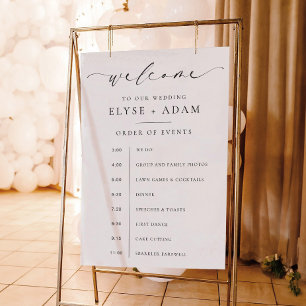 welcome
TO OUR WEDDING
ELYSE + ADAM
ORDER OF EVENTS
3:00 WE DO!
4:00 GROUP AND FAMILY PHOTOS
5:00 LAWN GAMES & COCKTAILS
6:30 DINNER
7:30 SPEECHES & TOASTS
8:30 FIRST DANCE
9:15 CAKE CUTTING
11:00 SPARKLER FAREWELL